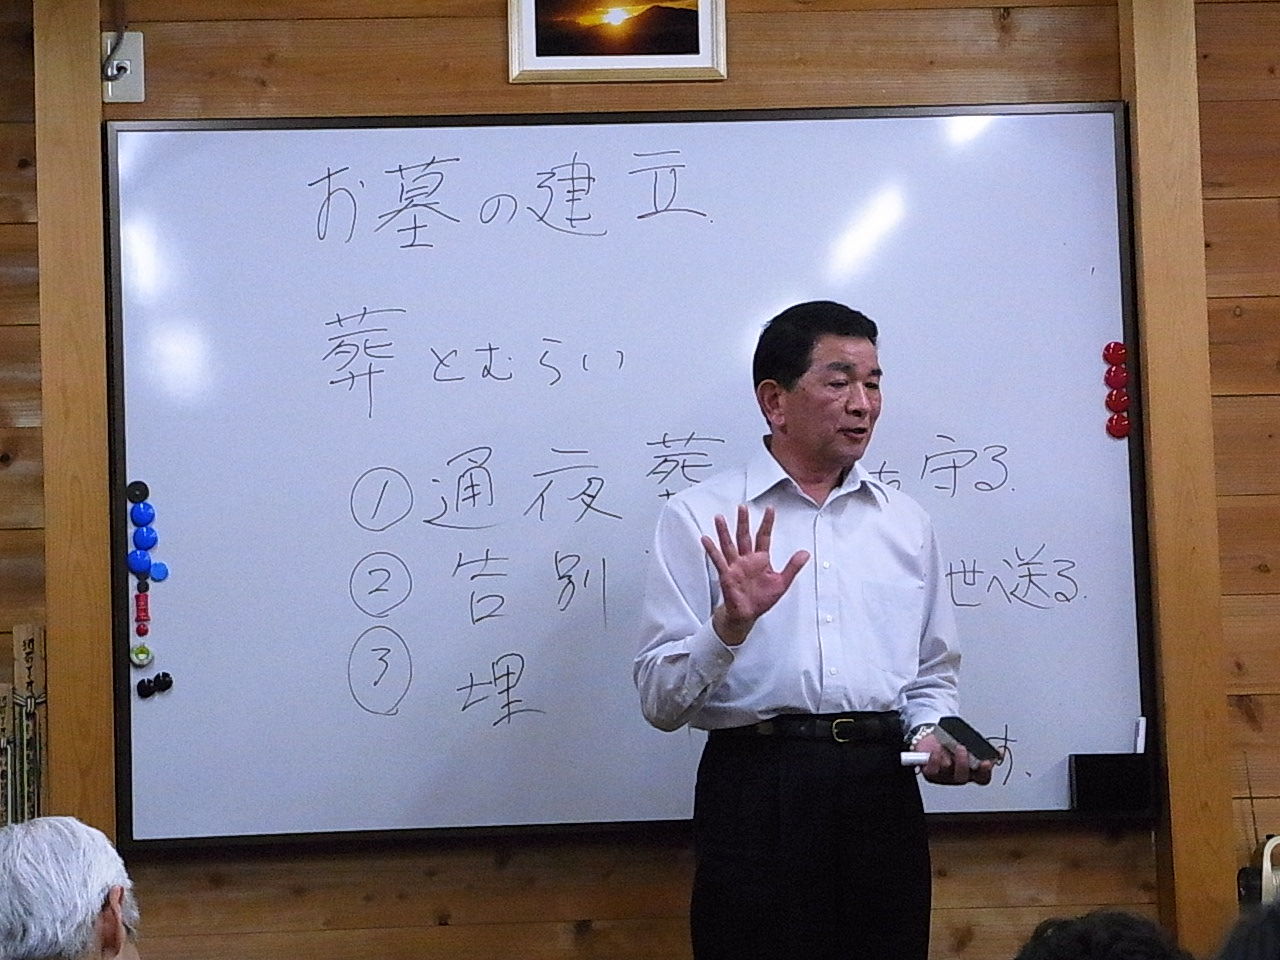 お墓の建立.
葬 とむらい
① 通夜 葬 守る.
② 告別 世へ送る.
③ 埋 す.